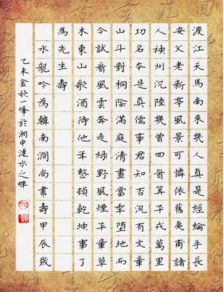 渡江天馬南來幾人真是經綸手長
安父老新亭風景可憐依舊夷甫諸
人神州沉陸幾曾回首算平戎萬里
功名本是真儒事君知否況有文章
山斗對桐陰滿庭清晝當年墮地而
今試看風雲奔走綠野風煙平泉草
木東山歌酒待他年整頓乾坤事了
為先生壽
水龍吟為韓南澗尚書壽甲辰歲
乙未金秋一峰於湘中漣水之畔